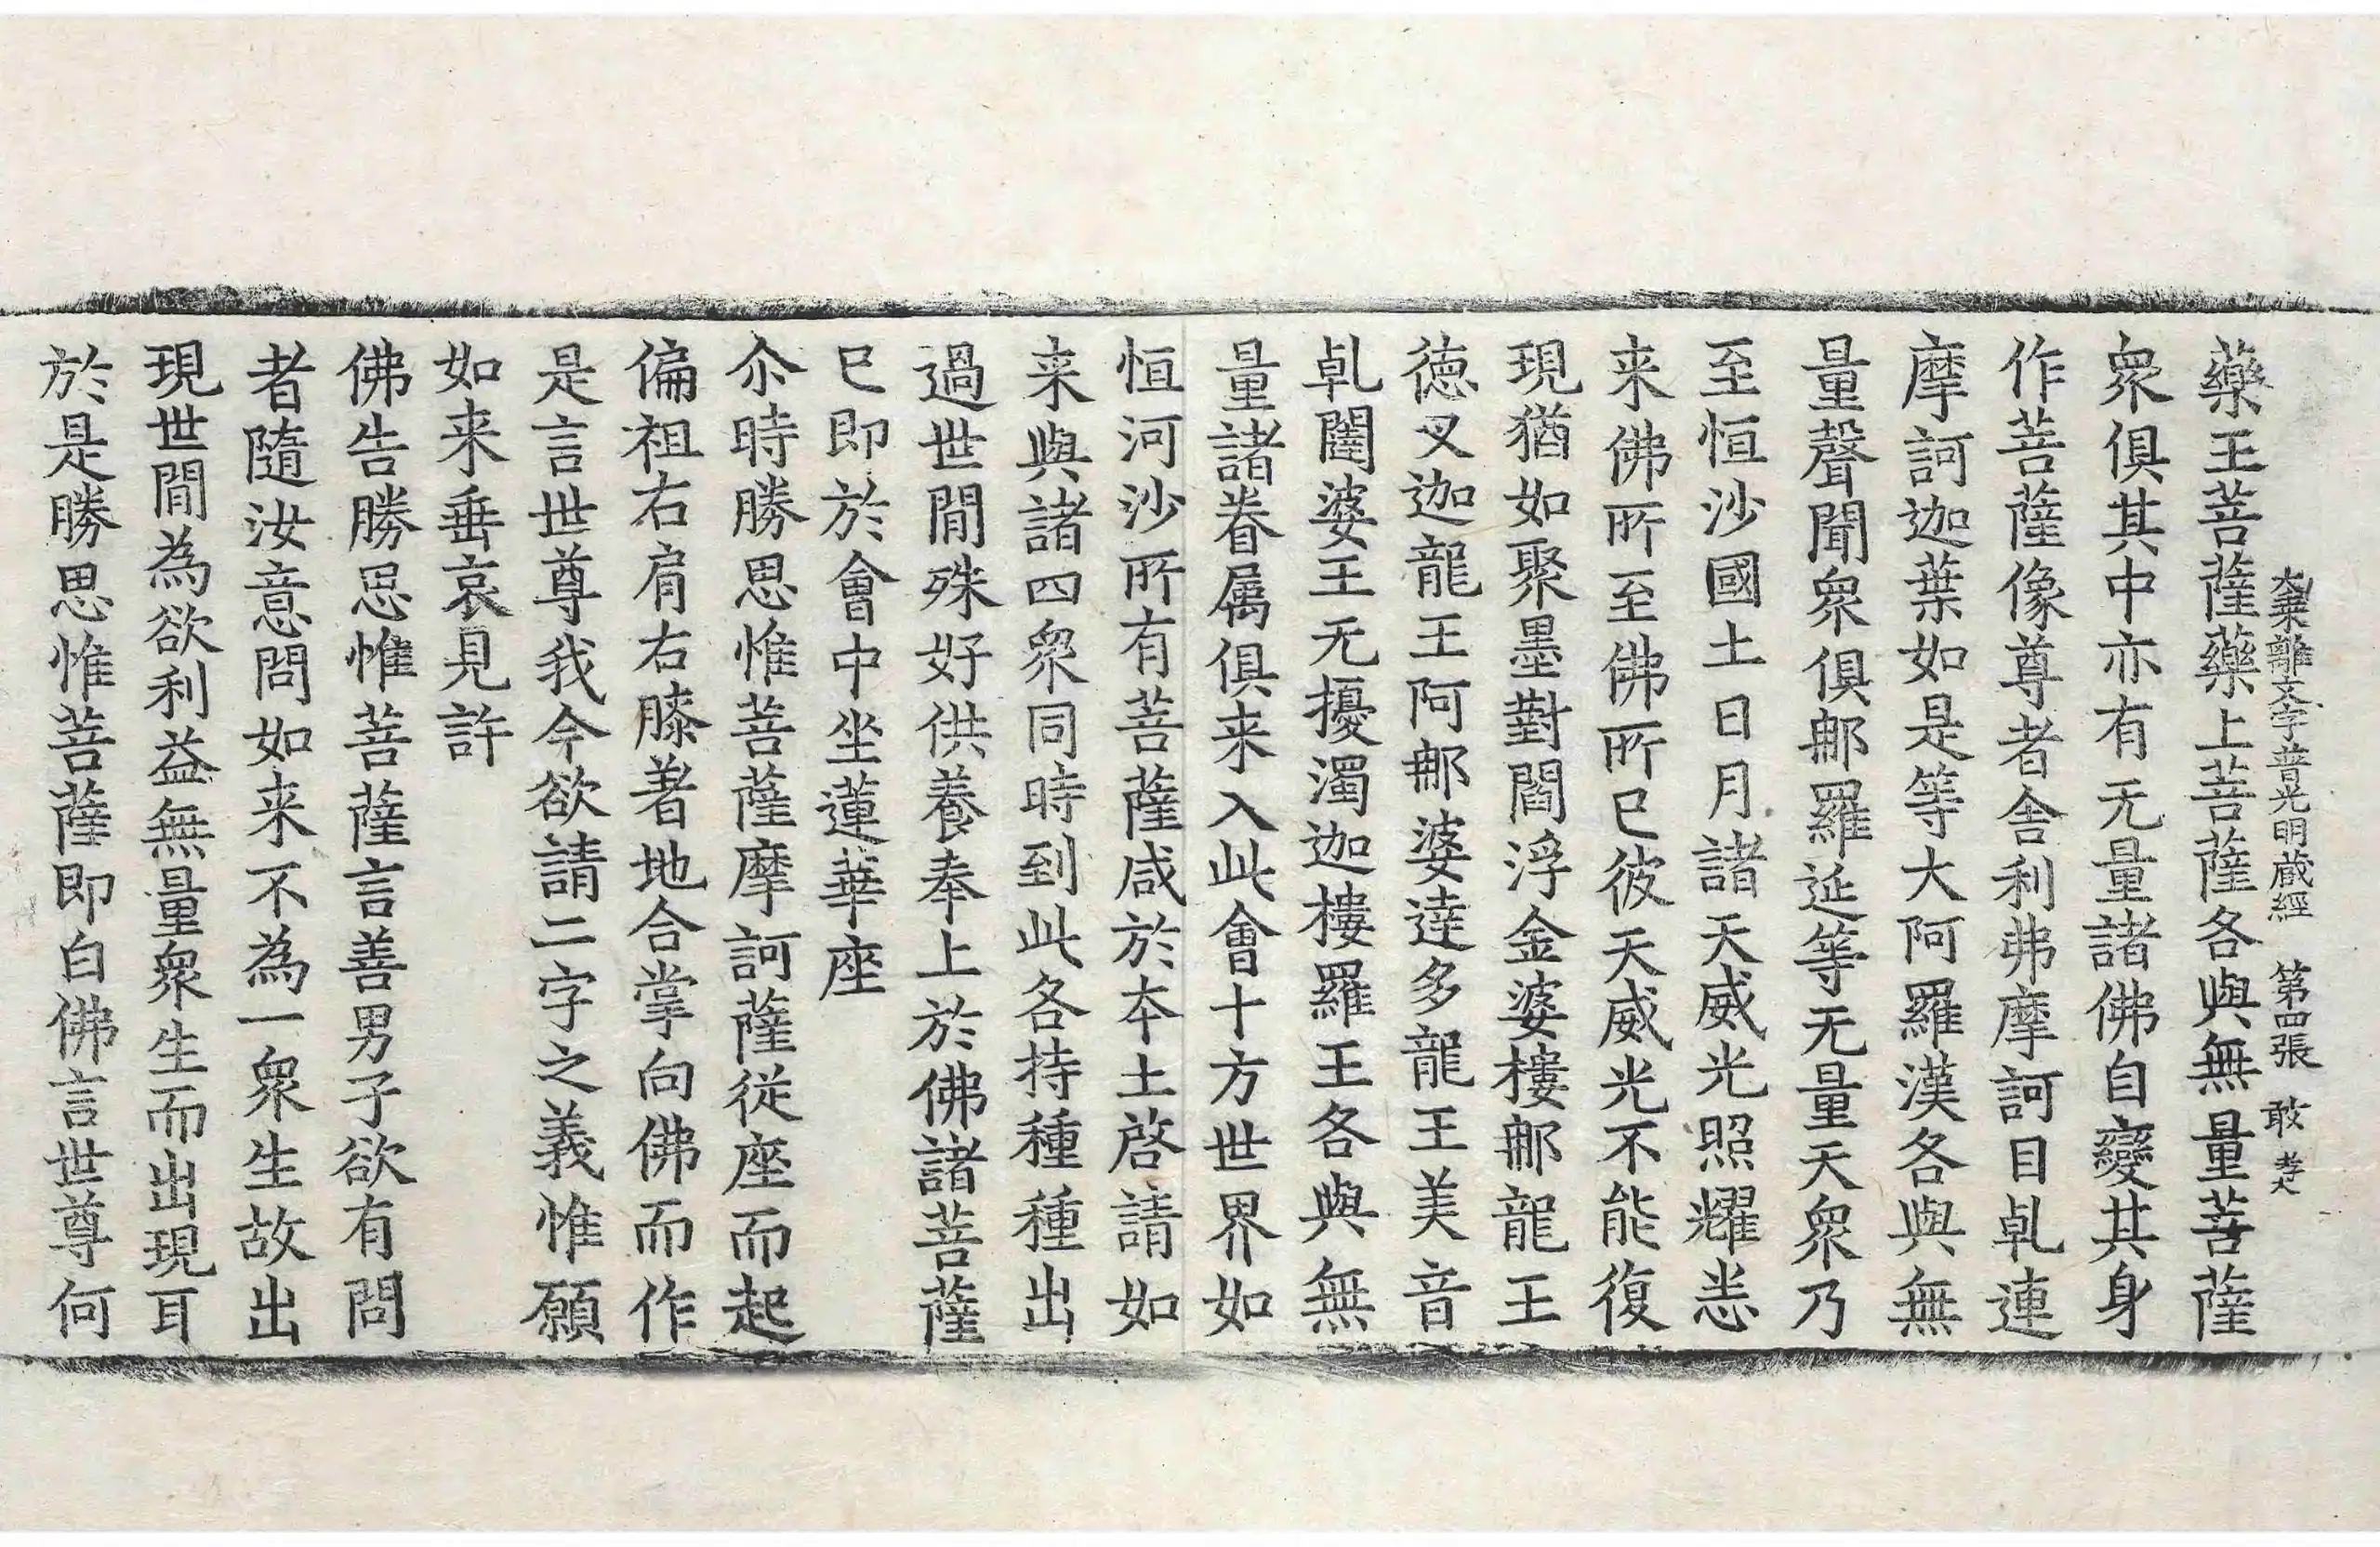 大乘離文字普光明藏經　第四張　敢
藥王菩薩藥上菩薩各與無量菩薩
衆俱其中亦有无量諸佛自變其身
作菩薩像尊者舍利弗摩訶目乹連
摩訶迦葉如是等大阿羅漢各與無
量聲聞衆俱郍羅延等无量天衆乃
至恒沙國土日月諸天威光照耀悉
来佛所至佛所已彼天威光不能復
現猶如聚墨對閻浮金婆樓郍龍王
徳叉迦龍王阿郍婆達多龍王美音
乹闥婆王无擾濁迦樓羅王各與無
量諸眷属俱来入此會十方世界如
恒河沙所有菩薩咸於夲土啓請如
来與諸四衆同時到此各持種種出
過世間殊好供養奉上於佛諸菩薩
已即於會中坐蓮華座
尒時勝思惟菩薩摩訶薩従座而起
偏袒右肩右膝著地合掌向佛而作
是言世尊我今欲請二字之義惟願
如来垂哀見許
佛告勝思惟菩薩言善男子欲有問
者隨汝意問如来不為一衆生故出
現世間為欲利益無量衆生而出現耳
於是勝思惟菩薩即白佛言世尊何